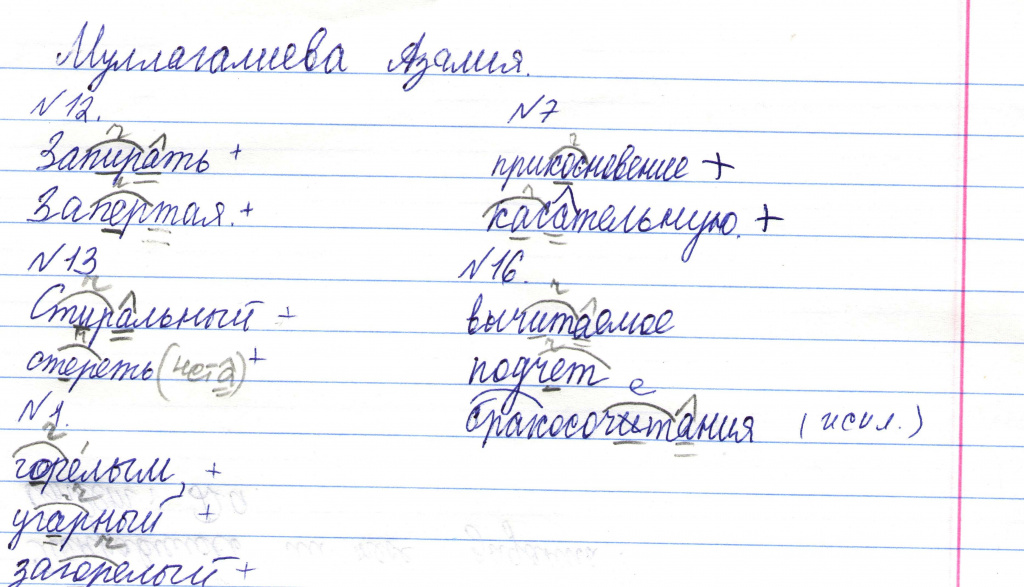 Муллагалиева Азалия.
№12.
Запирать +
Запертая. +
№13
Стиральный +
отереть (нет а) +
№1.
горелым, +
угарный +
загорелый +
№7
прикосновение +
касательную. +
№16.
вычитаемое
подчет
е
бракосочитания (искл.)